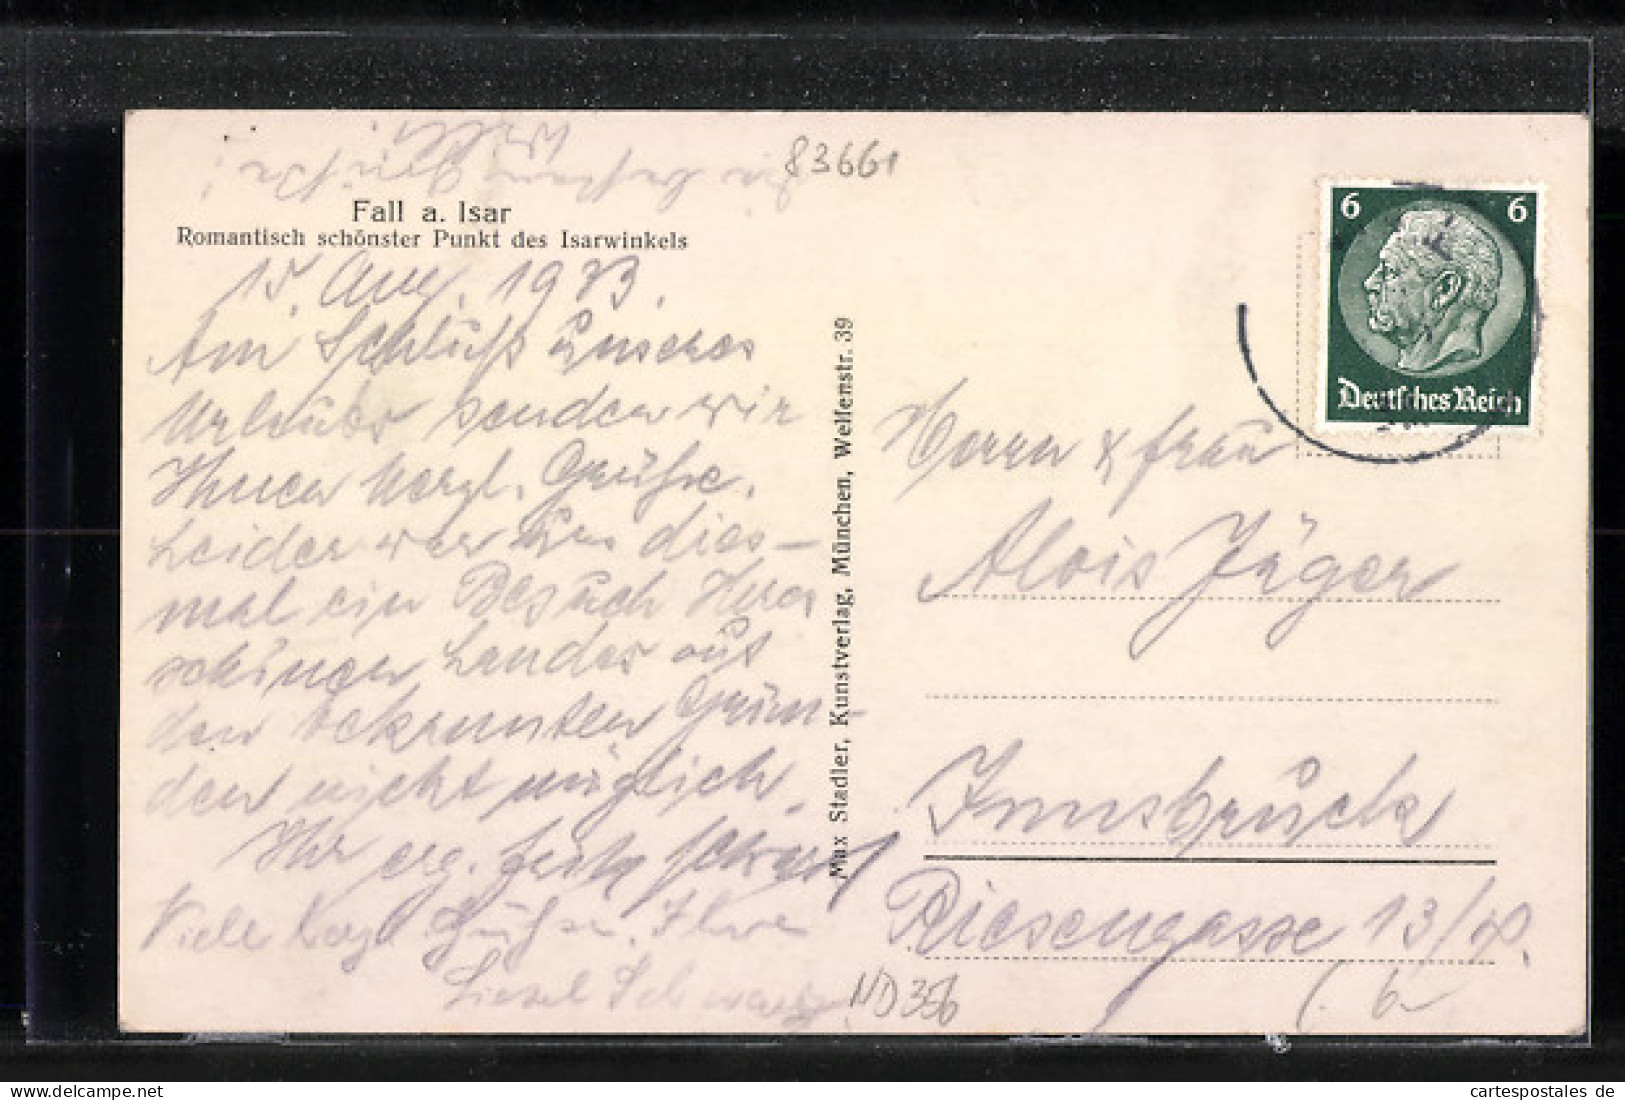 83661
6 6
Deutsches Reich
Fall a. Isar
Romantisch schönster Punkt des Isarwinkels
15. Aug. 1933.
Am Schluß unseres
Urlaubs senden wir
Ihnen herzl. Grüße.
Leider war uns dies-
mal ein Besuch Ihres
schönen Landes aus
den bekannten Grün-
den nicht möglich.
Ihr erg.
Viele herzl. Grüße. Ihre
Liesel Schwarz
Max Stadler, Kunstverlag, München, Welfenstr. 39
Herrn & Frau
Alois Jäger
Innsbruck
Riesengasse 13/
ND 356
cartespostales de